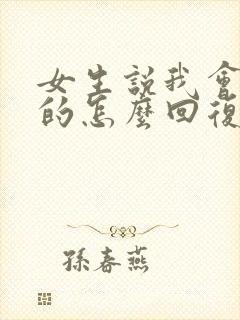 女生說我會
的怎麼回復
孫春燕